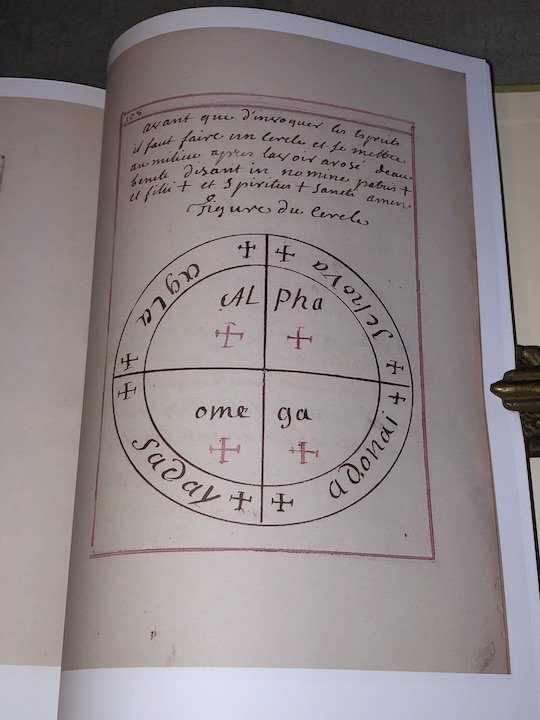 avant que d'invoquer les Esprits
il faut faire un Cercle et se mettre
au milieu apres lavoir arosé deau
benite disant in nomine patris +
et filii + et Spiritus + Sancti amen
Figure du Cercle
agla + + Jehova
AL Pha
+ +
+ +
+ +
ome ga
+ +
Saday + + adonai